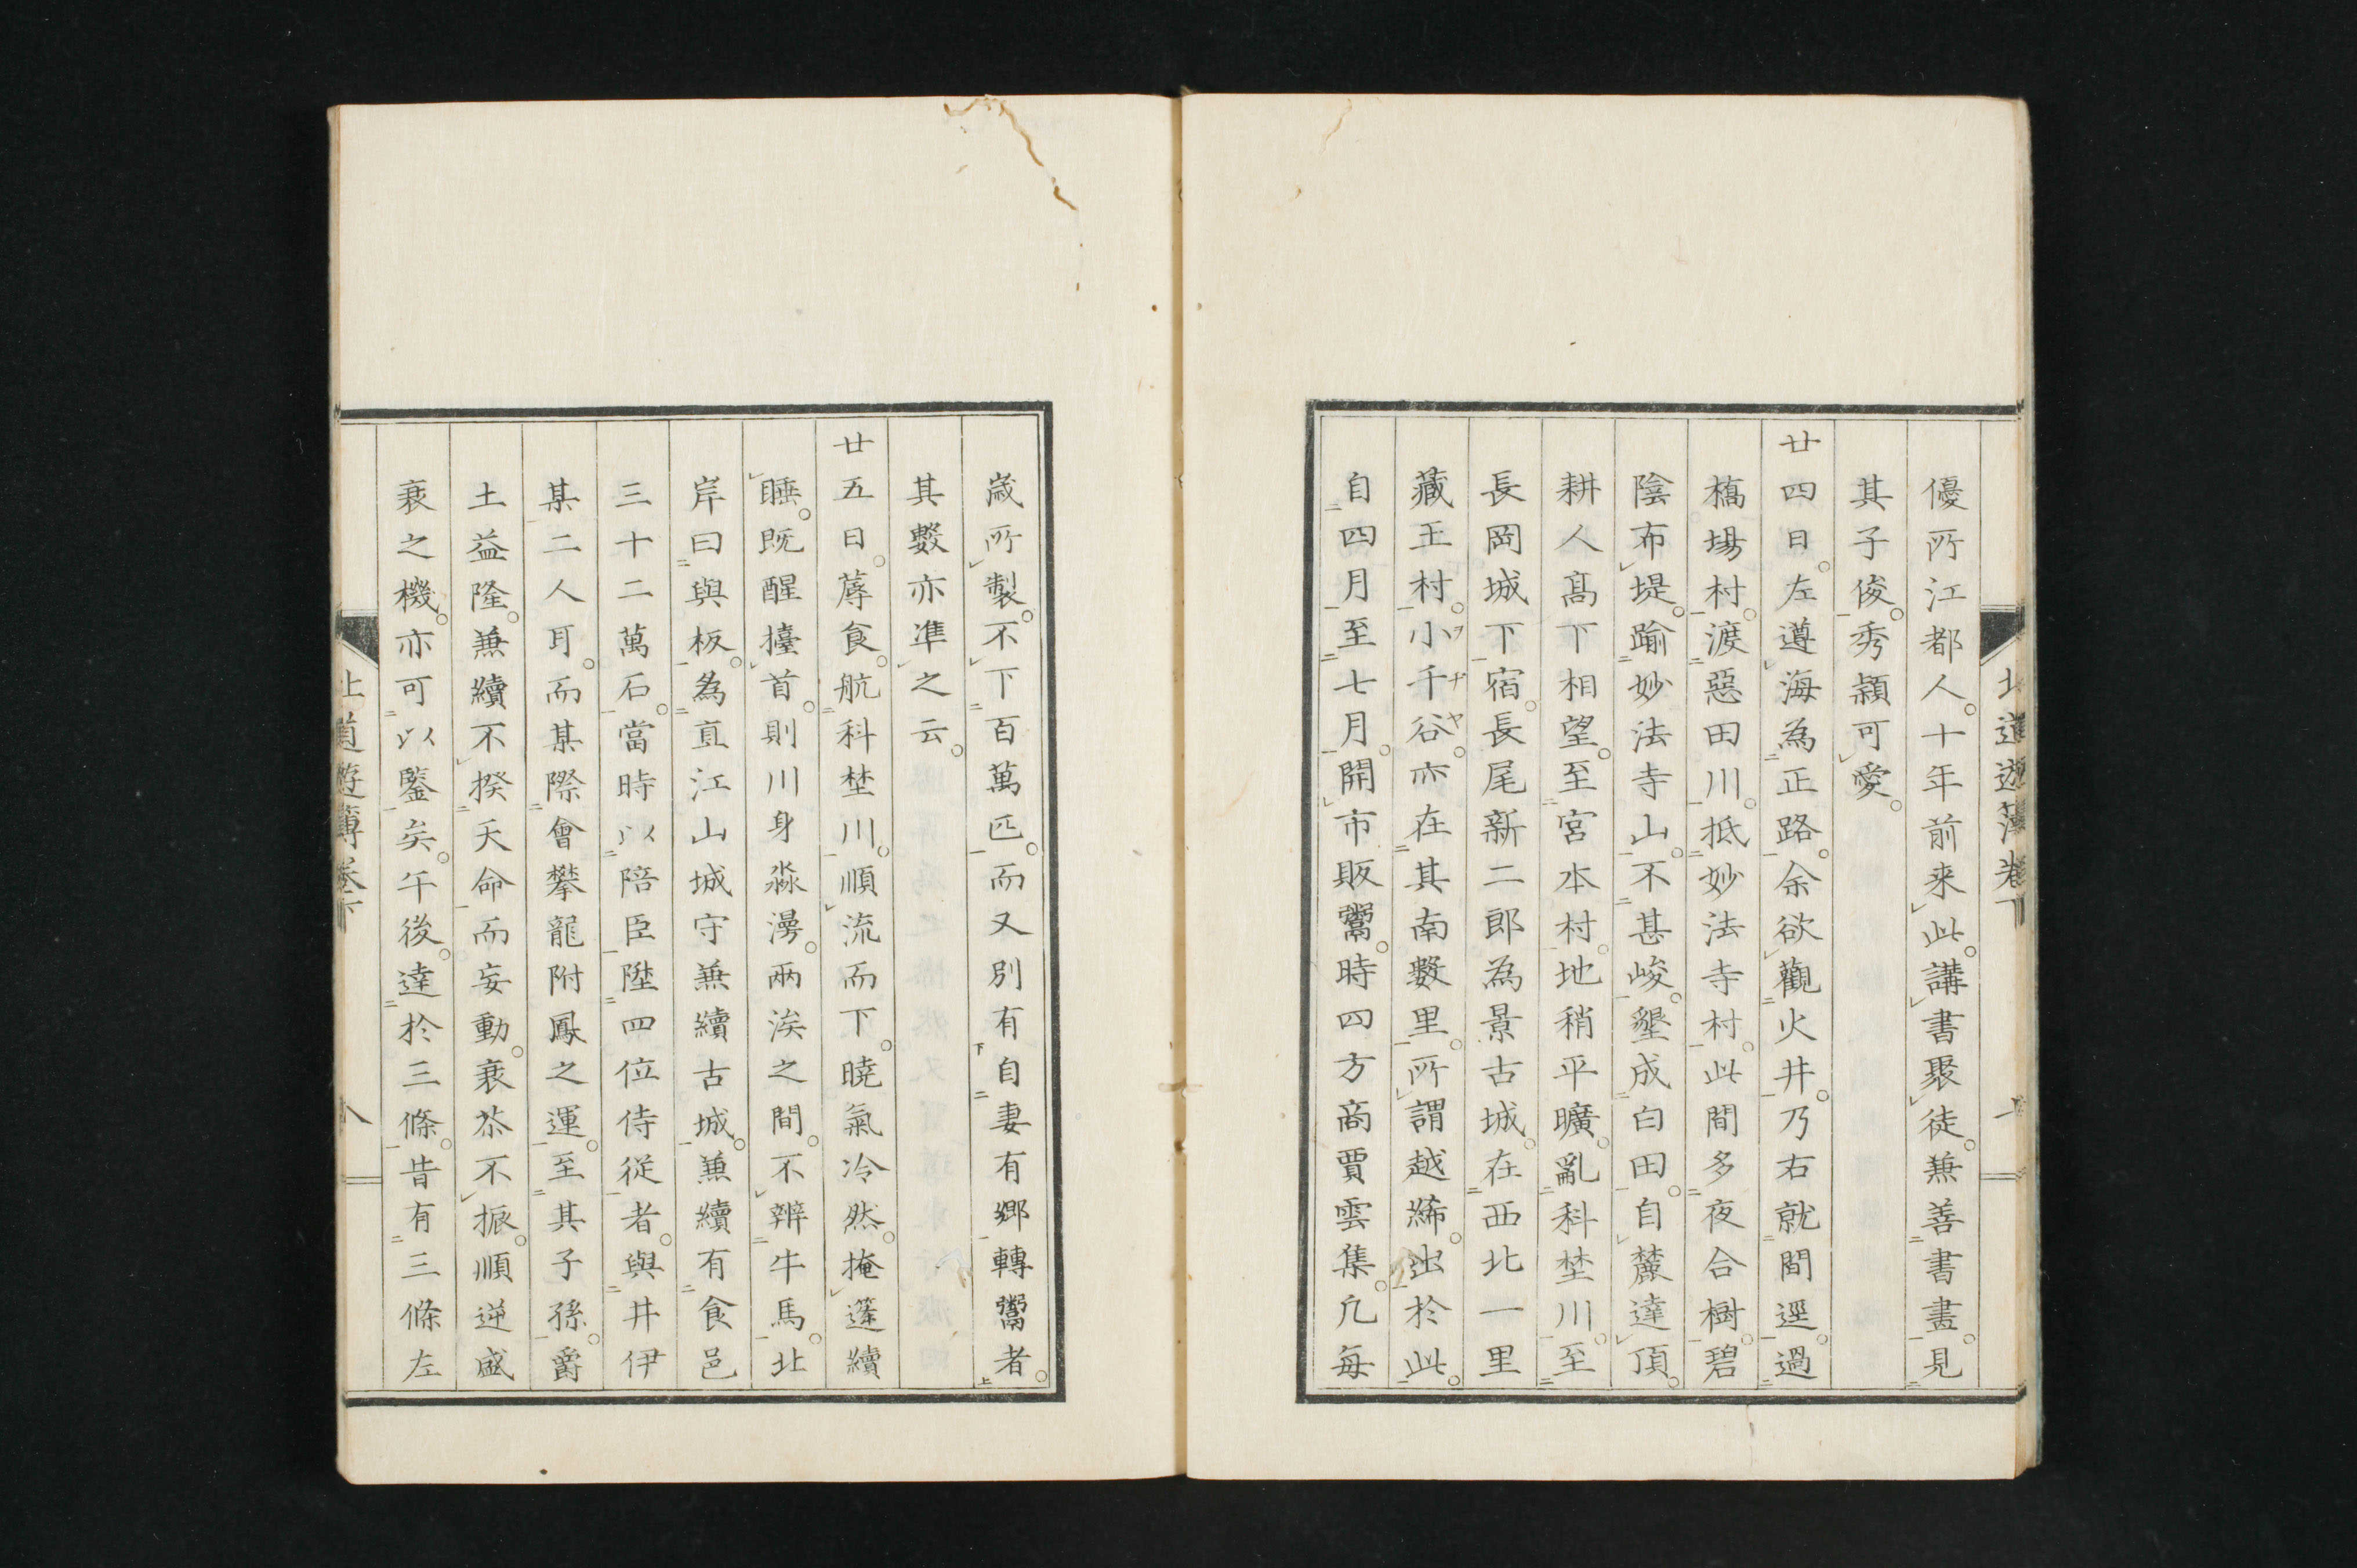 優所江都人。十年前来此。講書聚徒。兼善書畫。見
其子俊。秀穎可愛。
廿四日。左遵海為正路。余欲觀火井。乃右就間逕。過
橋場村。渡惡田川。抵妙法寺村。此間多夜合樹。碧
陰布堤。踰妙法寺山。不甚峻。墾成白田。自麓達頂。
耕人髙下相望。至宮本村。地稍平曠。亂科埜川。至
長岡城下宿。長尾新二郎為景古城。在西北一里
藏王村。小千谷。亦在其南數里。所謂越絺。出於此。
自四月至七月。開市販鬻。時四方商賈雲集。凡每
歳所製。不下百萬匹。而又別有自妻有郷轉鬻者。
其數亦準之云。
廿五日。蓐食。航科埜川。順流而下。暁氣冷然。掩篷續
睡。既醒擡首。則川身淼漫。兩涘之間。不辨牛馬。北
岸曰與板。為直江山城守兼續古城。兼續有食邑
三十二萬石。當時以陪臣陞四位侍従者。與井伊
某二人耳。而某際會攀龍附鳳之運。至其子孫。爵
土益隆。兼續不揆天命而妄動。衰苶不振。順逆盛
衰之機。亦可以鑒矣。午後。達於三條。昔有三條左
北道遊簿卷下
八